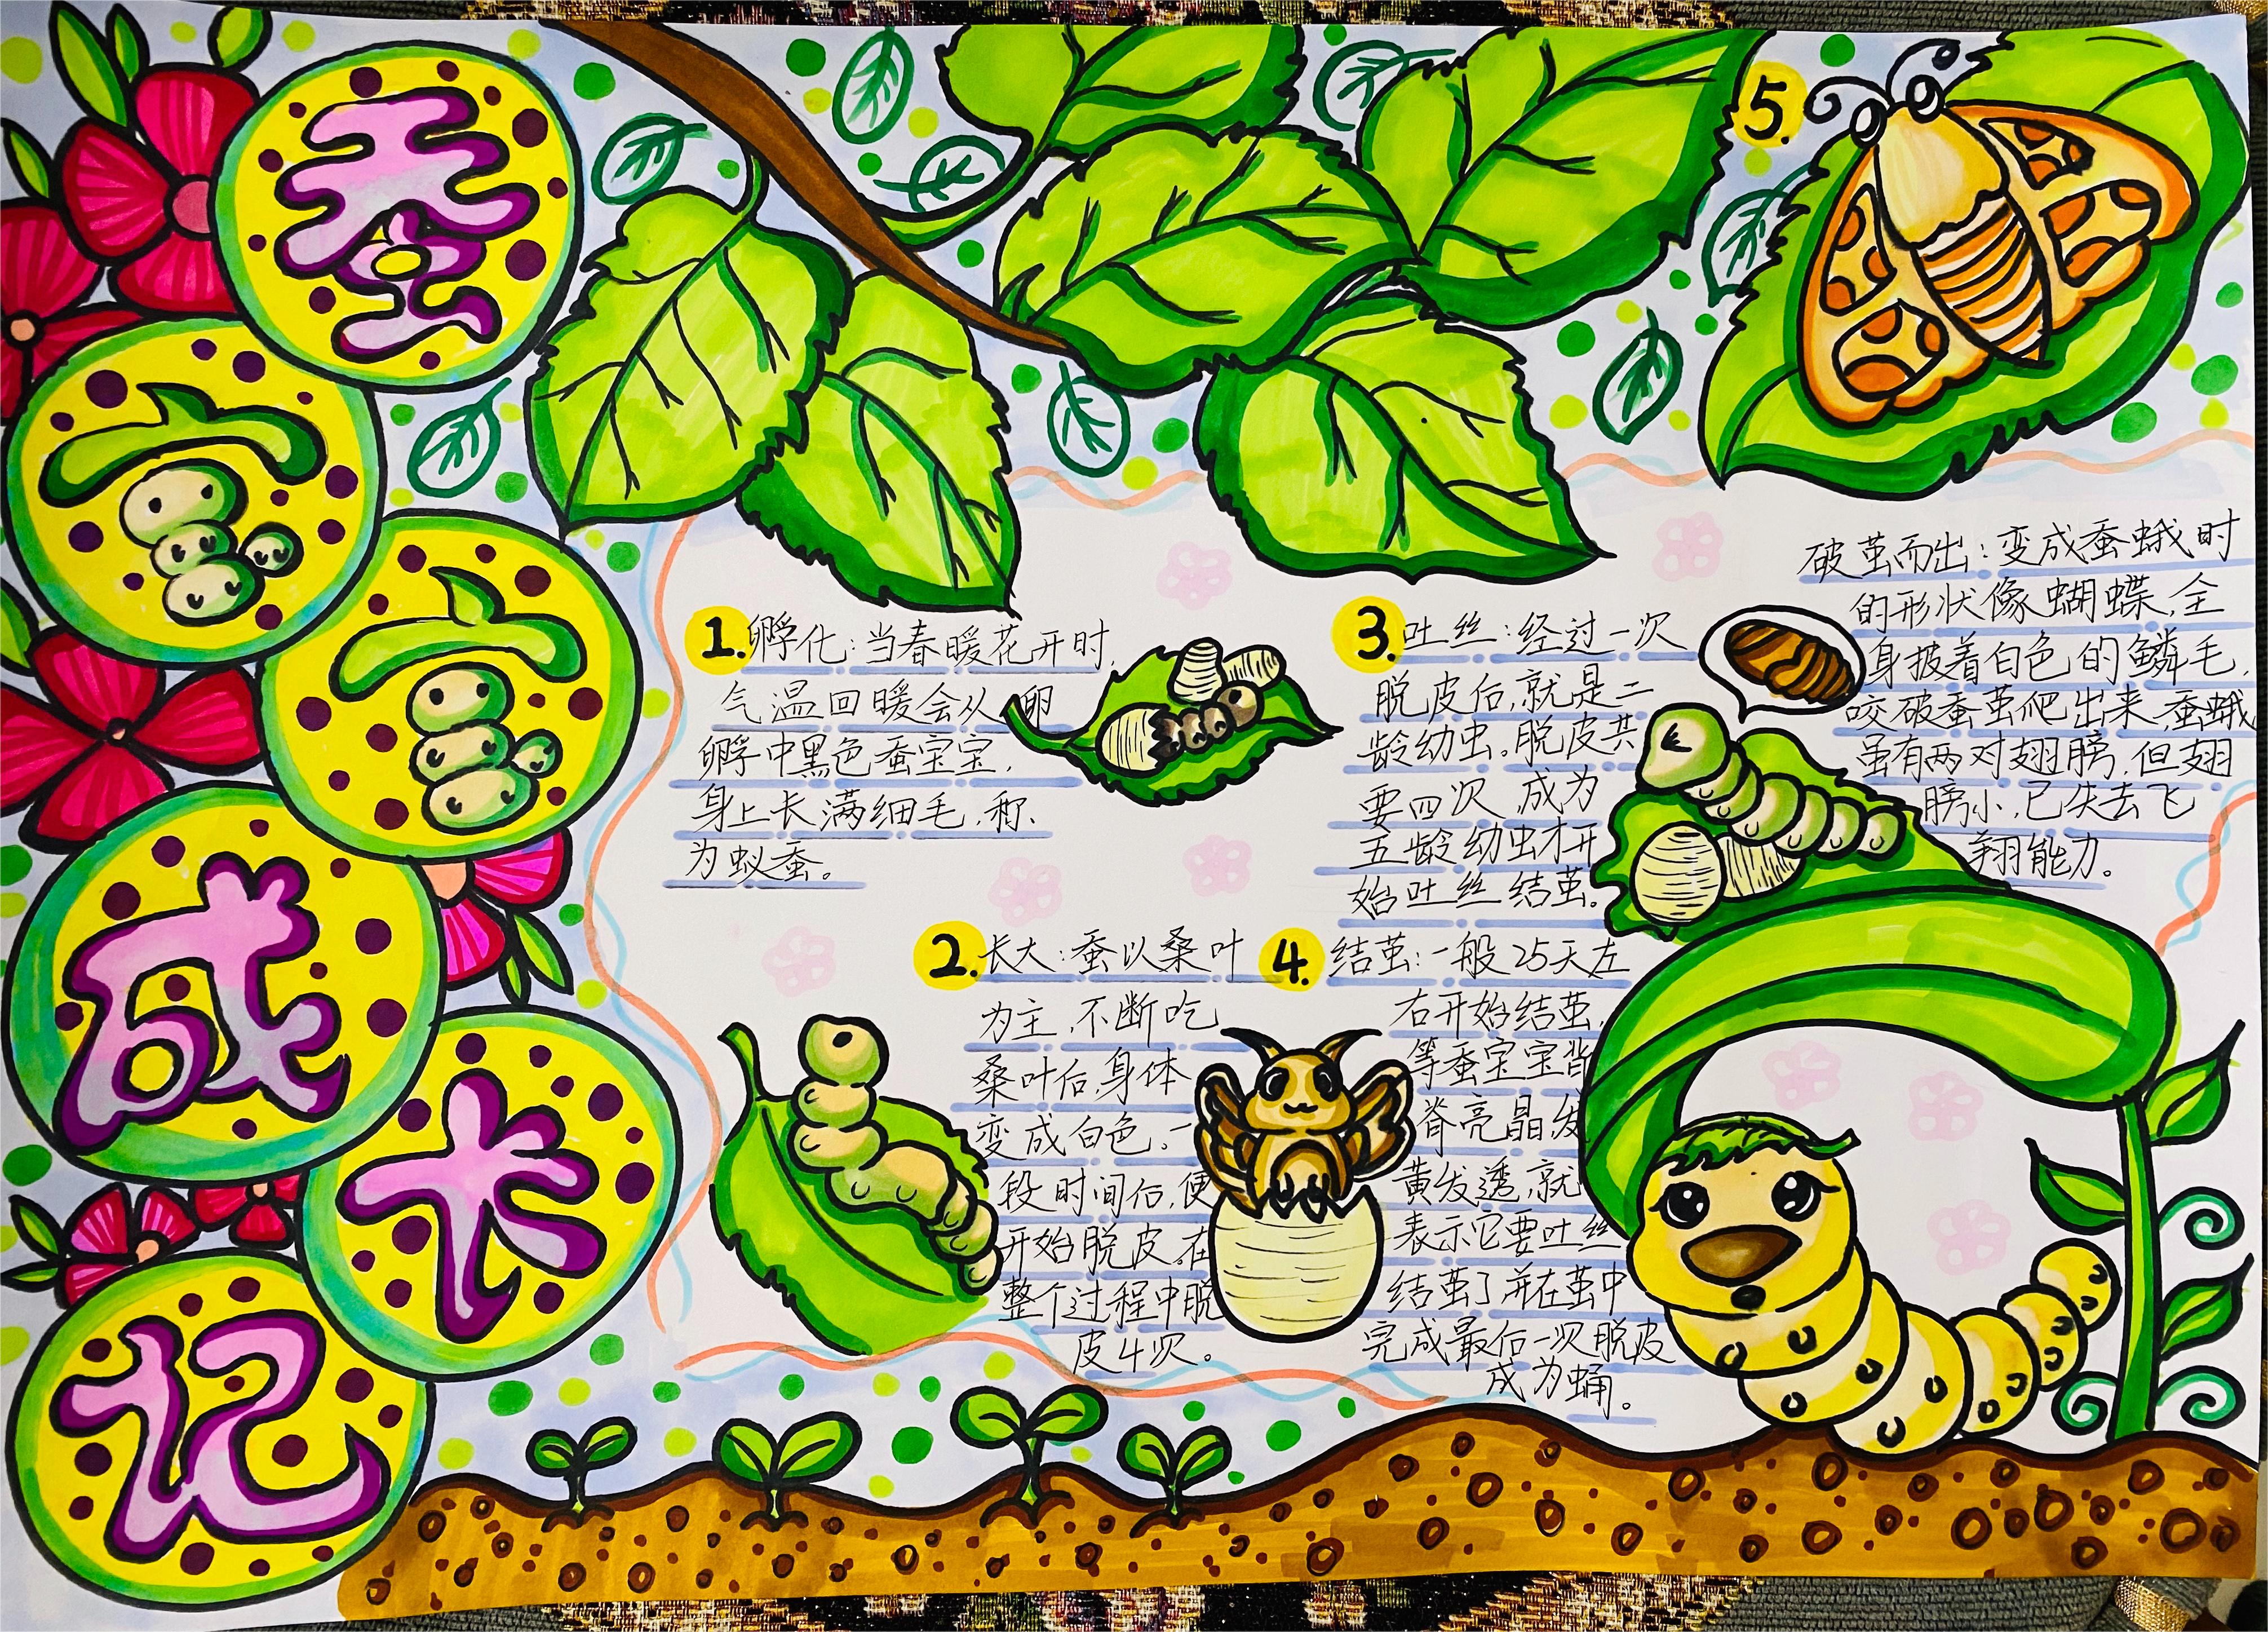 蚕
宝
宝
成
长
记
1.孵化:当春暖花开时,
气温回暖会从卵
孵中黑色蚕宝宝,
身上长满细毛,称
为蚁蚕。
2.长大:蚕以桑叶
为主,不断吃
桑叶后,身体
变成白色。一
段时间后,便
开始脱皮。在
整个过程中脱
皮4次。
3.吐丝:经过一次
脱皮后,就是二
龄幼虫。脱皮共
要四次 成为
五龄幼虫才开
始吐丝结茧。
4.结茧:一般25天左
右开始结茧,
等蚕宝宝背
脊亮晶发
黄发透,就
表示它要吐丝
结茧了并在茧中
完成最后一次脱皮
成为蛹。
5.
破茧而出:变成蚕蛾时
的形状像蝴蝶,全
身披着白色的鳞毛,
咬破蚕茧爬出来,蚕蛾
虽有两对翅膀,但翅
膀小,已失去飞
翔能力。